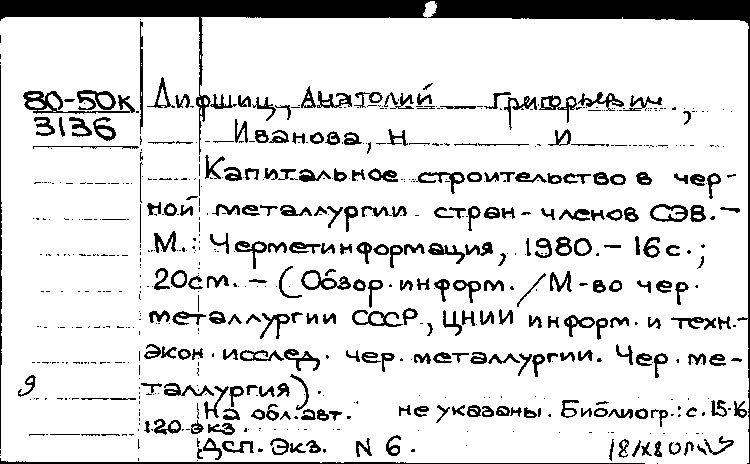 80-50к
3136
Лифшиц, Анатолий Григорьевич.,
Иванова, Н И
Капитальное строительство в чер-
ной металлургии стран-членов СЭВ. -
М.: Черметинформация, 1980. - 16 с.;
20 см. - (Обзор. информ. / М-во чер.
металлургии СССР, ЦНИИ информ. и техн.-
экон. исслед. чер. металлургии. Чер. ме-
таллургия).
На обл. авт. не указаны. Библиогр.: с. 15-16
120 экз.
Дсп. Экз. N 6.